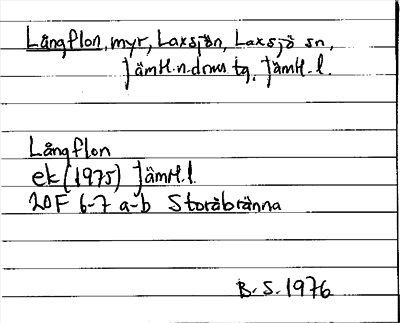 Långflon, myr, Laxsjön, Laxsjö sn,
Jämtl.n.doms tg, Jämtl.l.
Långflon
ek (1975) Jämtl.l.
20F 6-7 a-b Storåbränna
B.S. 1976